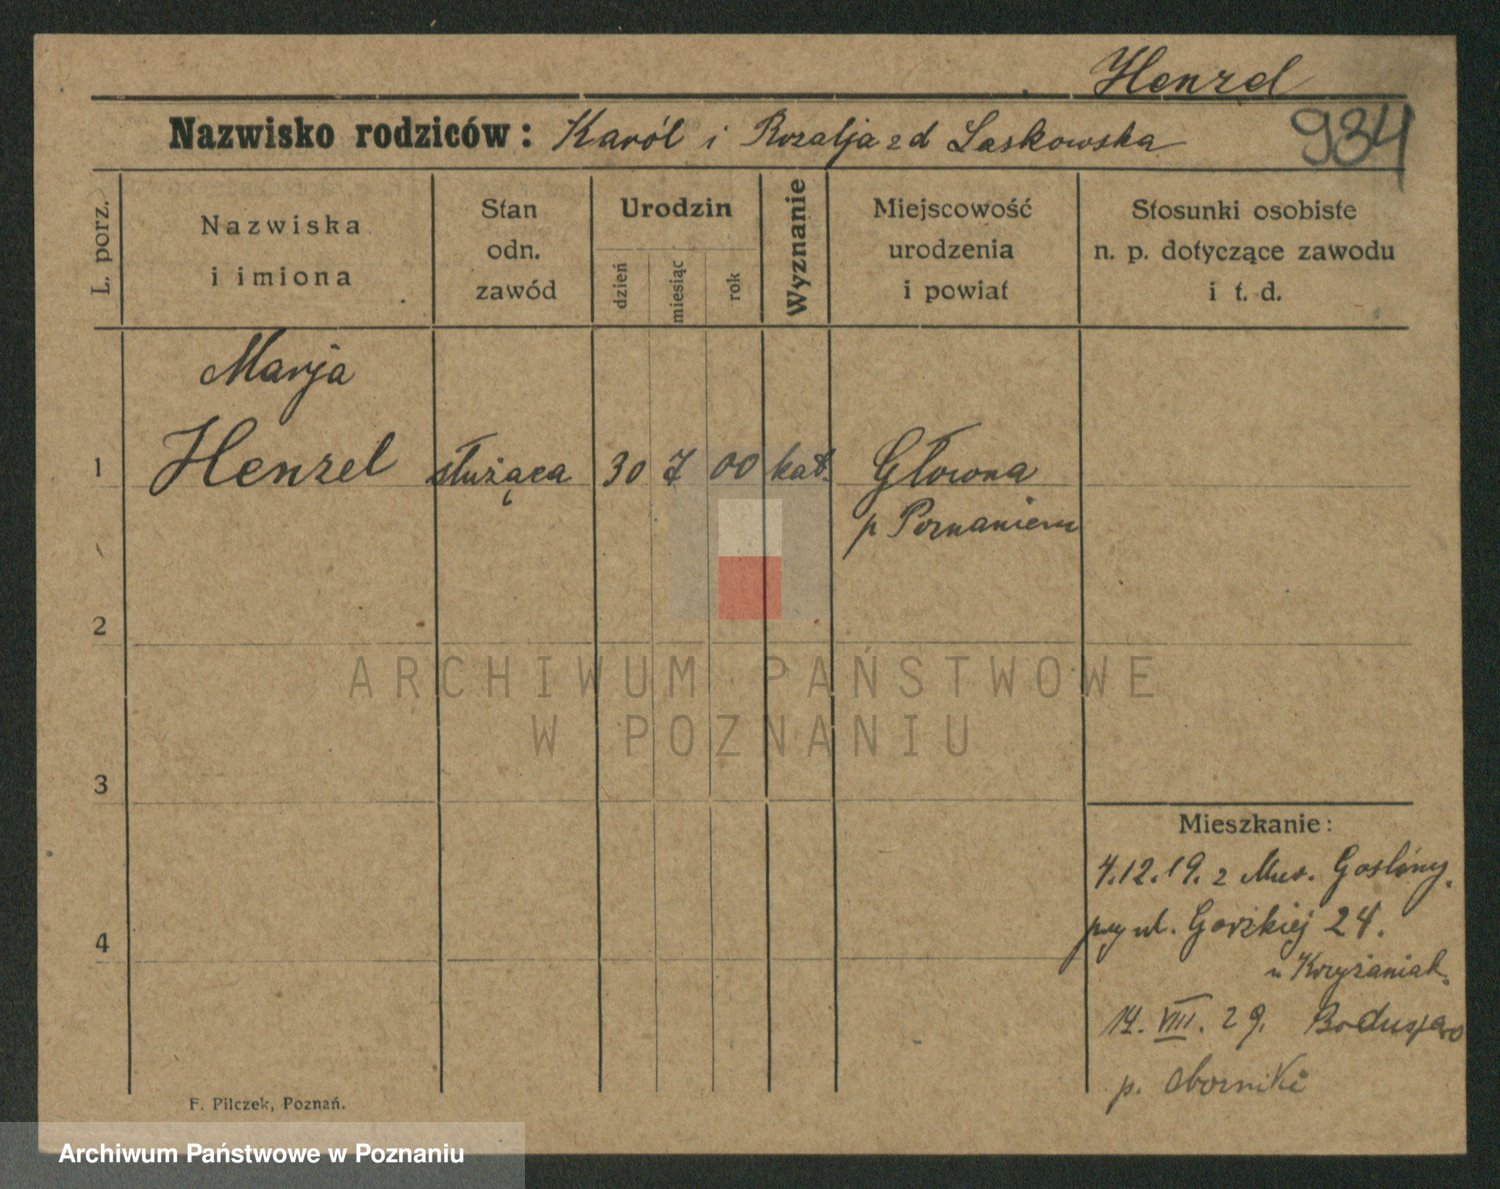 Henzel
Nazwisko rodziców: Karól i Rozalja zd Laskowska
934
L. porz.
Nazwiska
i imiona
Stan
odn.
zawód
Urodzin
dzień
miesiąc
rok
Wyznanie
Miejscowość
urodzenia
i powiat
Stosunki osobiste
n. p. dotyczące zawodu
i t. d.
Marja
1 Henzel służąca 30 7 00 kat. Głowna
p Poznaniem
2
ARCHIWUM PAŃSTWOWE
W POZNANIU
3
Mieszkanie:
4.12.19. z Mur. Gośliny.
4
przy ul. Gorzkiej 24.
u Krzyżaniak.
14. VIII. 29.
p. Oborniki
F. Pilczek, Poznań.
Archiwum Państwowe w Poznaniu